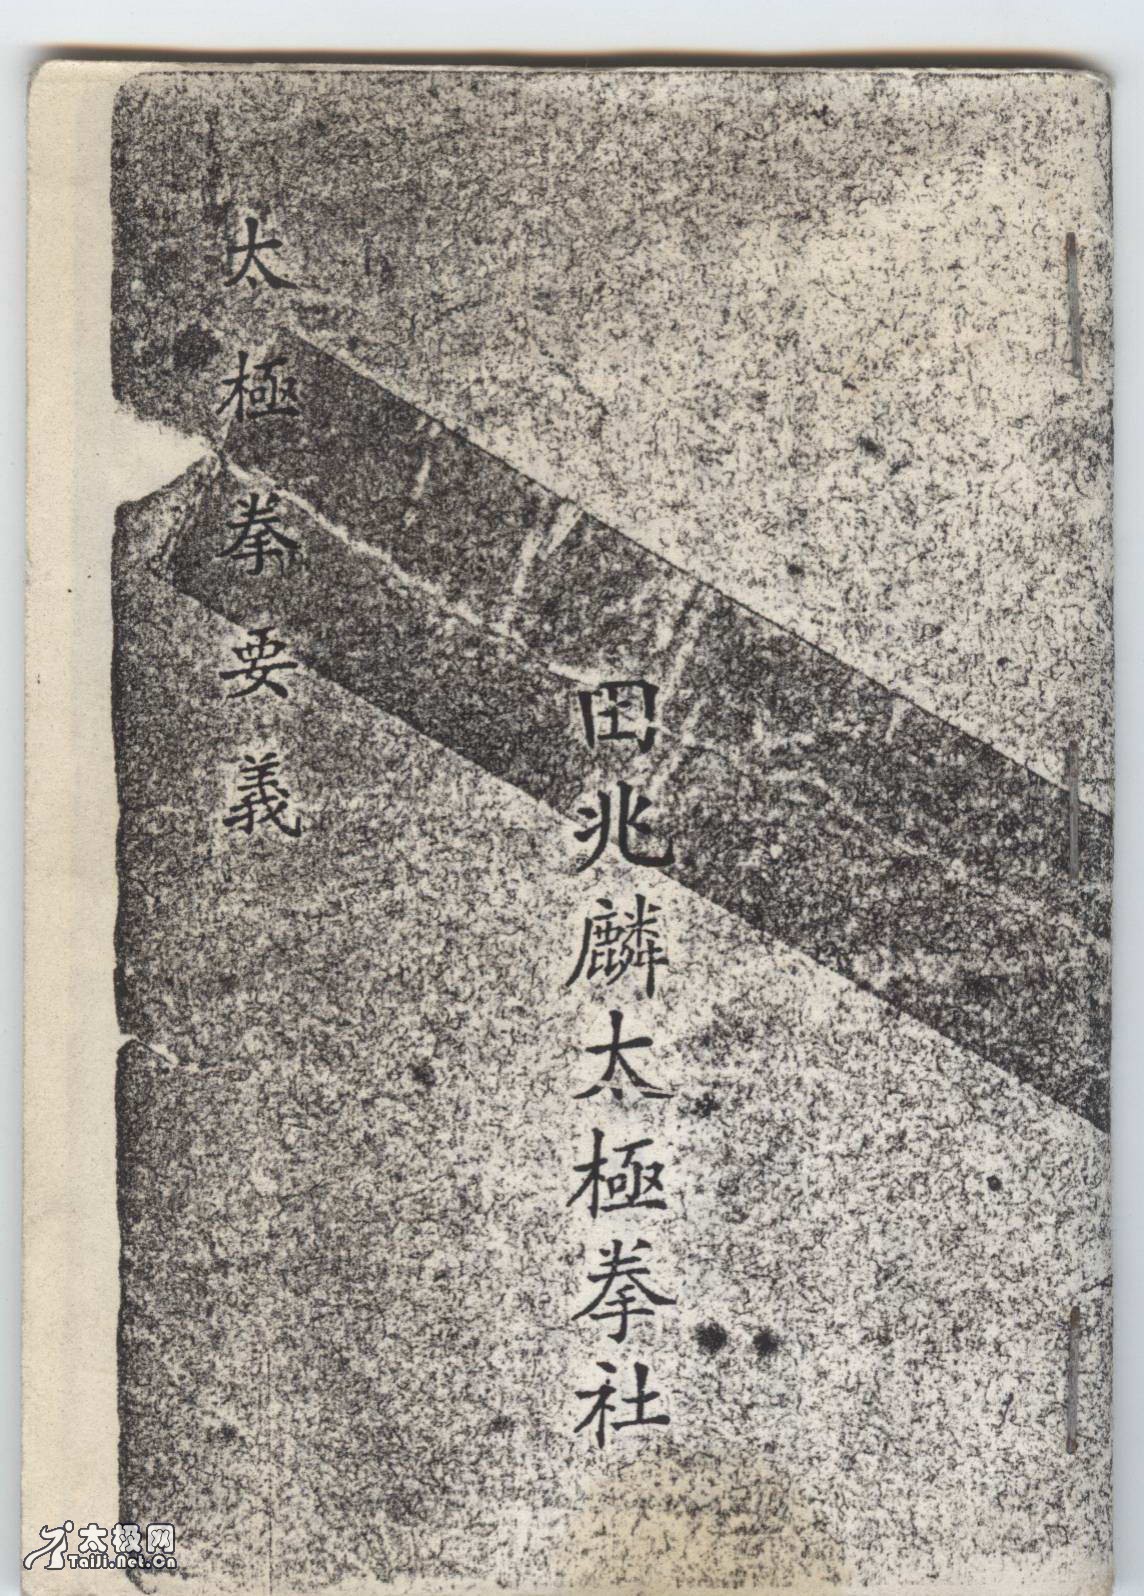 田兆麟太極拳社
太極拳要義
太极网
TaiJi.Net.Cn